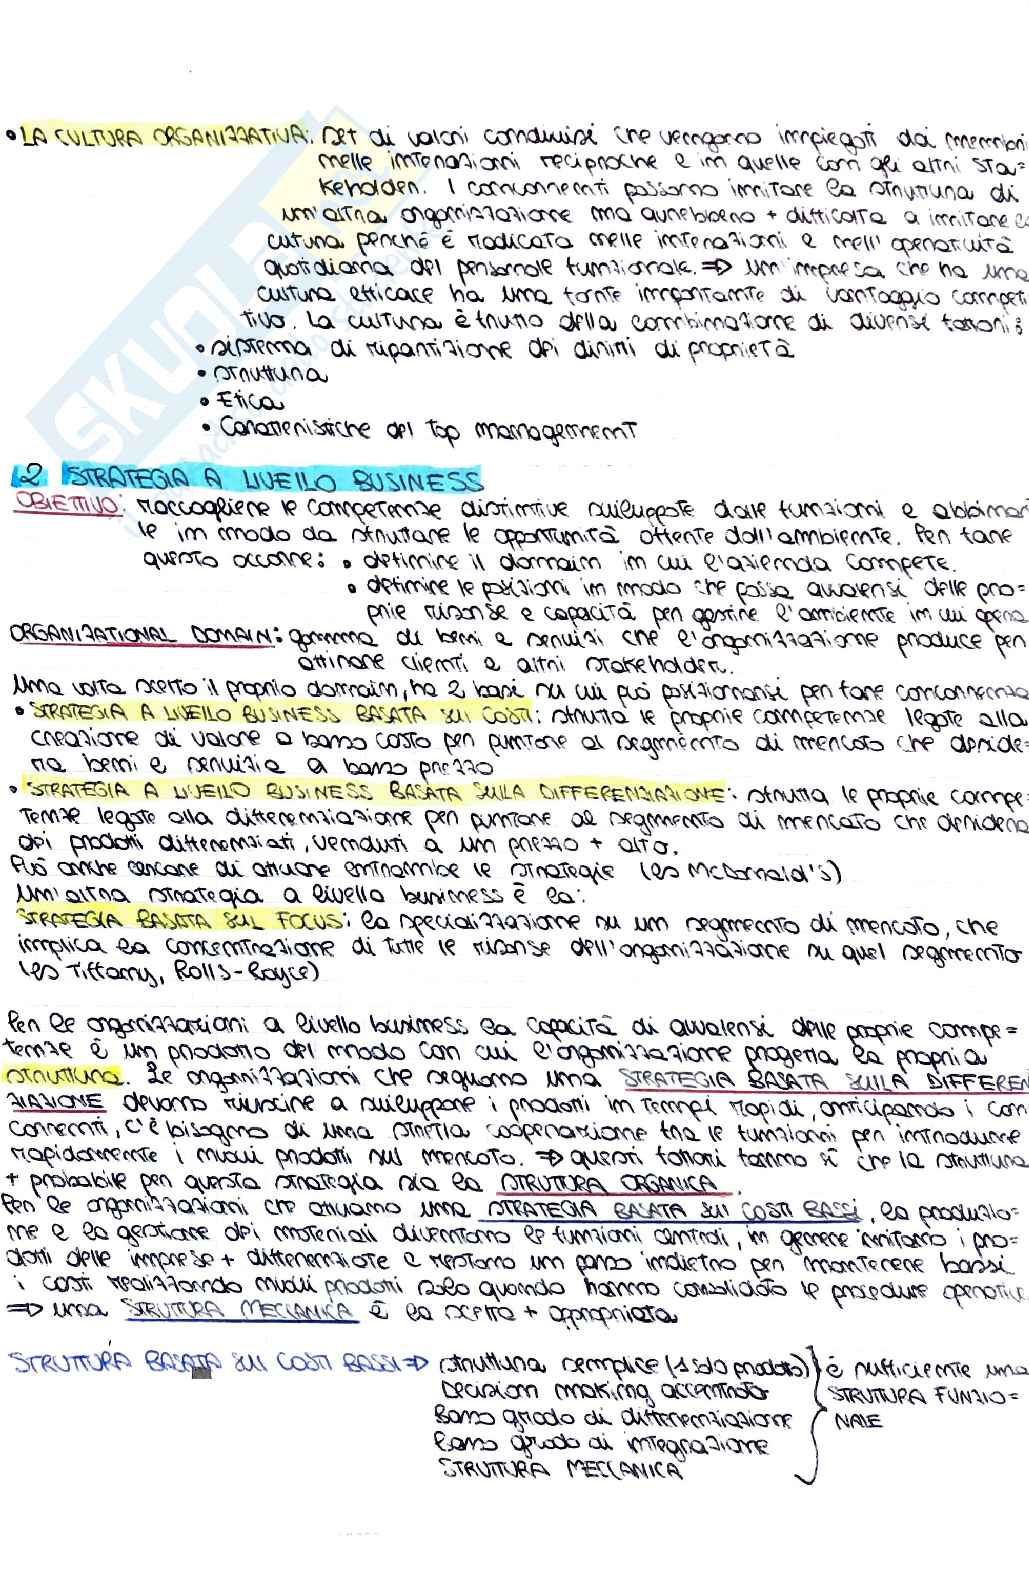 • LA CULTURA ORGANIZZATIVA: set di valori condivisi che vengono impiegati dai membri
nelle interazioni reciproche e in quelle con gli altri sta=
keholder. I concorrenti possono imitare la struttura di
un'altra organizzazione ma avrebbero + difficoltà a imitare la
cutura perché è radicata nelle interazioni e nell'operatività
quotidiana del personale funzionale. => un'impresa che ha una
cultura efficace ha una fonte importante di vantaggio competi
tivo. La cultura è frutto della combinazione di diversi fattori:
• sistema di ripartizione dei diritti di proprietà
• struttura
• Etica
• Caratteristiche del top management
2 STRATEGIA A LIVELLO BUSINESS
OBIETTIVO: raccogliere le competenze distintive sviluppate dalle funzioni e abbinar
le in modo da sfruttare le opportunità offerte dall'ambiente. Per fare
questo occorre: • definire il domain in cui l'azienda compete.
• definire le posizioni in modo che possa avvalersi delle pro=
prie risorse e capacità per gestire l'ambiente in cui opera
ORGANIZATIONAL DOMAIN: gamma di beni e servizi che l'organizzazione produce per
attirare clienti e altri stakeholder.
Una volta scelto il proprio domain, ha 2 basi su cui può posizionarsi per fare concorrenza
• STRATEGIA A LIVELLO BUSINESS BASATA SUI COSTI: sfrutta le proprie competenze legate alla
creazione di valore a basso costo per puntare al segmento di mercato che deside=
ra beni e servizia a basso prezzo
• STRATEGIA A LIVELLO BUSINESS BASATA SULLA DIFFERENZIAZIONE: sfrutta le proprie compe=
tenze legate alla differenziazione per puntare al segmento di mercato che desidera
dei prodotti differenziati, venduti a un prezzo + alto.
Può anche cercare di attuare entrambe le strategie (es McDonald's)
Un'altra strategia a livello business è la:
STRATEGIA BASATA SUL FOCUS: la specializzazione su un segmento di mercato, che
implica la concentrazione di tutte le risorse dell'organizzazione su quel segmento
(es Tiffany, Rolls-Royce)
Per le organizzazioni a livello business la capacità di avvalersi delle proprie compe=
tenze è un prodotto del modo con cui l'organizzazione progetta la propria
struttura. Le organizzazioni che seguono una STRATEGIA BASATA SULLA DIFFEREN
ZIAZIONE devono riuscire a sviluppare i prodotti in tempi rapidi, anticipando i con
correnti, c'è bisogno di una stretta cooperazione tra le funzioni per introdurre
rapidamente i nuovi prodotti sul mercato. => questi fattori fanno sì che la struttura
+ probabile per questa strategia sia la STRUTTURA ORGANICA.
Per le organizzazioni che attuano una STRATEGIA BASATA SUI COSTI BASSI, la produzio=
ne e la gestione dei materiali diventano le funzioni centrali, in genere imitano i pro=
dotti delle imprese + differenziate e restano un passo indietro per mantenere bassi
i costi realizzando nuovi prodotti solo quando hanno consolidato le procedure operative
=> una STRUTTURA MECCANICA è la scelta + appropriata
STRUTTURA BASATA SUI COSTI BASSI => struttura semplice (1 solo prodotto) è sufficiente una
Decision making accentrato STRUTTURA FUNZIO=
Basso grado di differenziazione NALE
Basso grado di integrazione
STRUTTURA MECCANICA